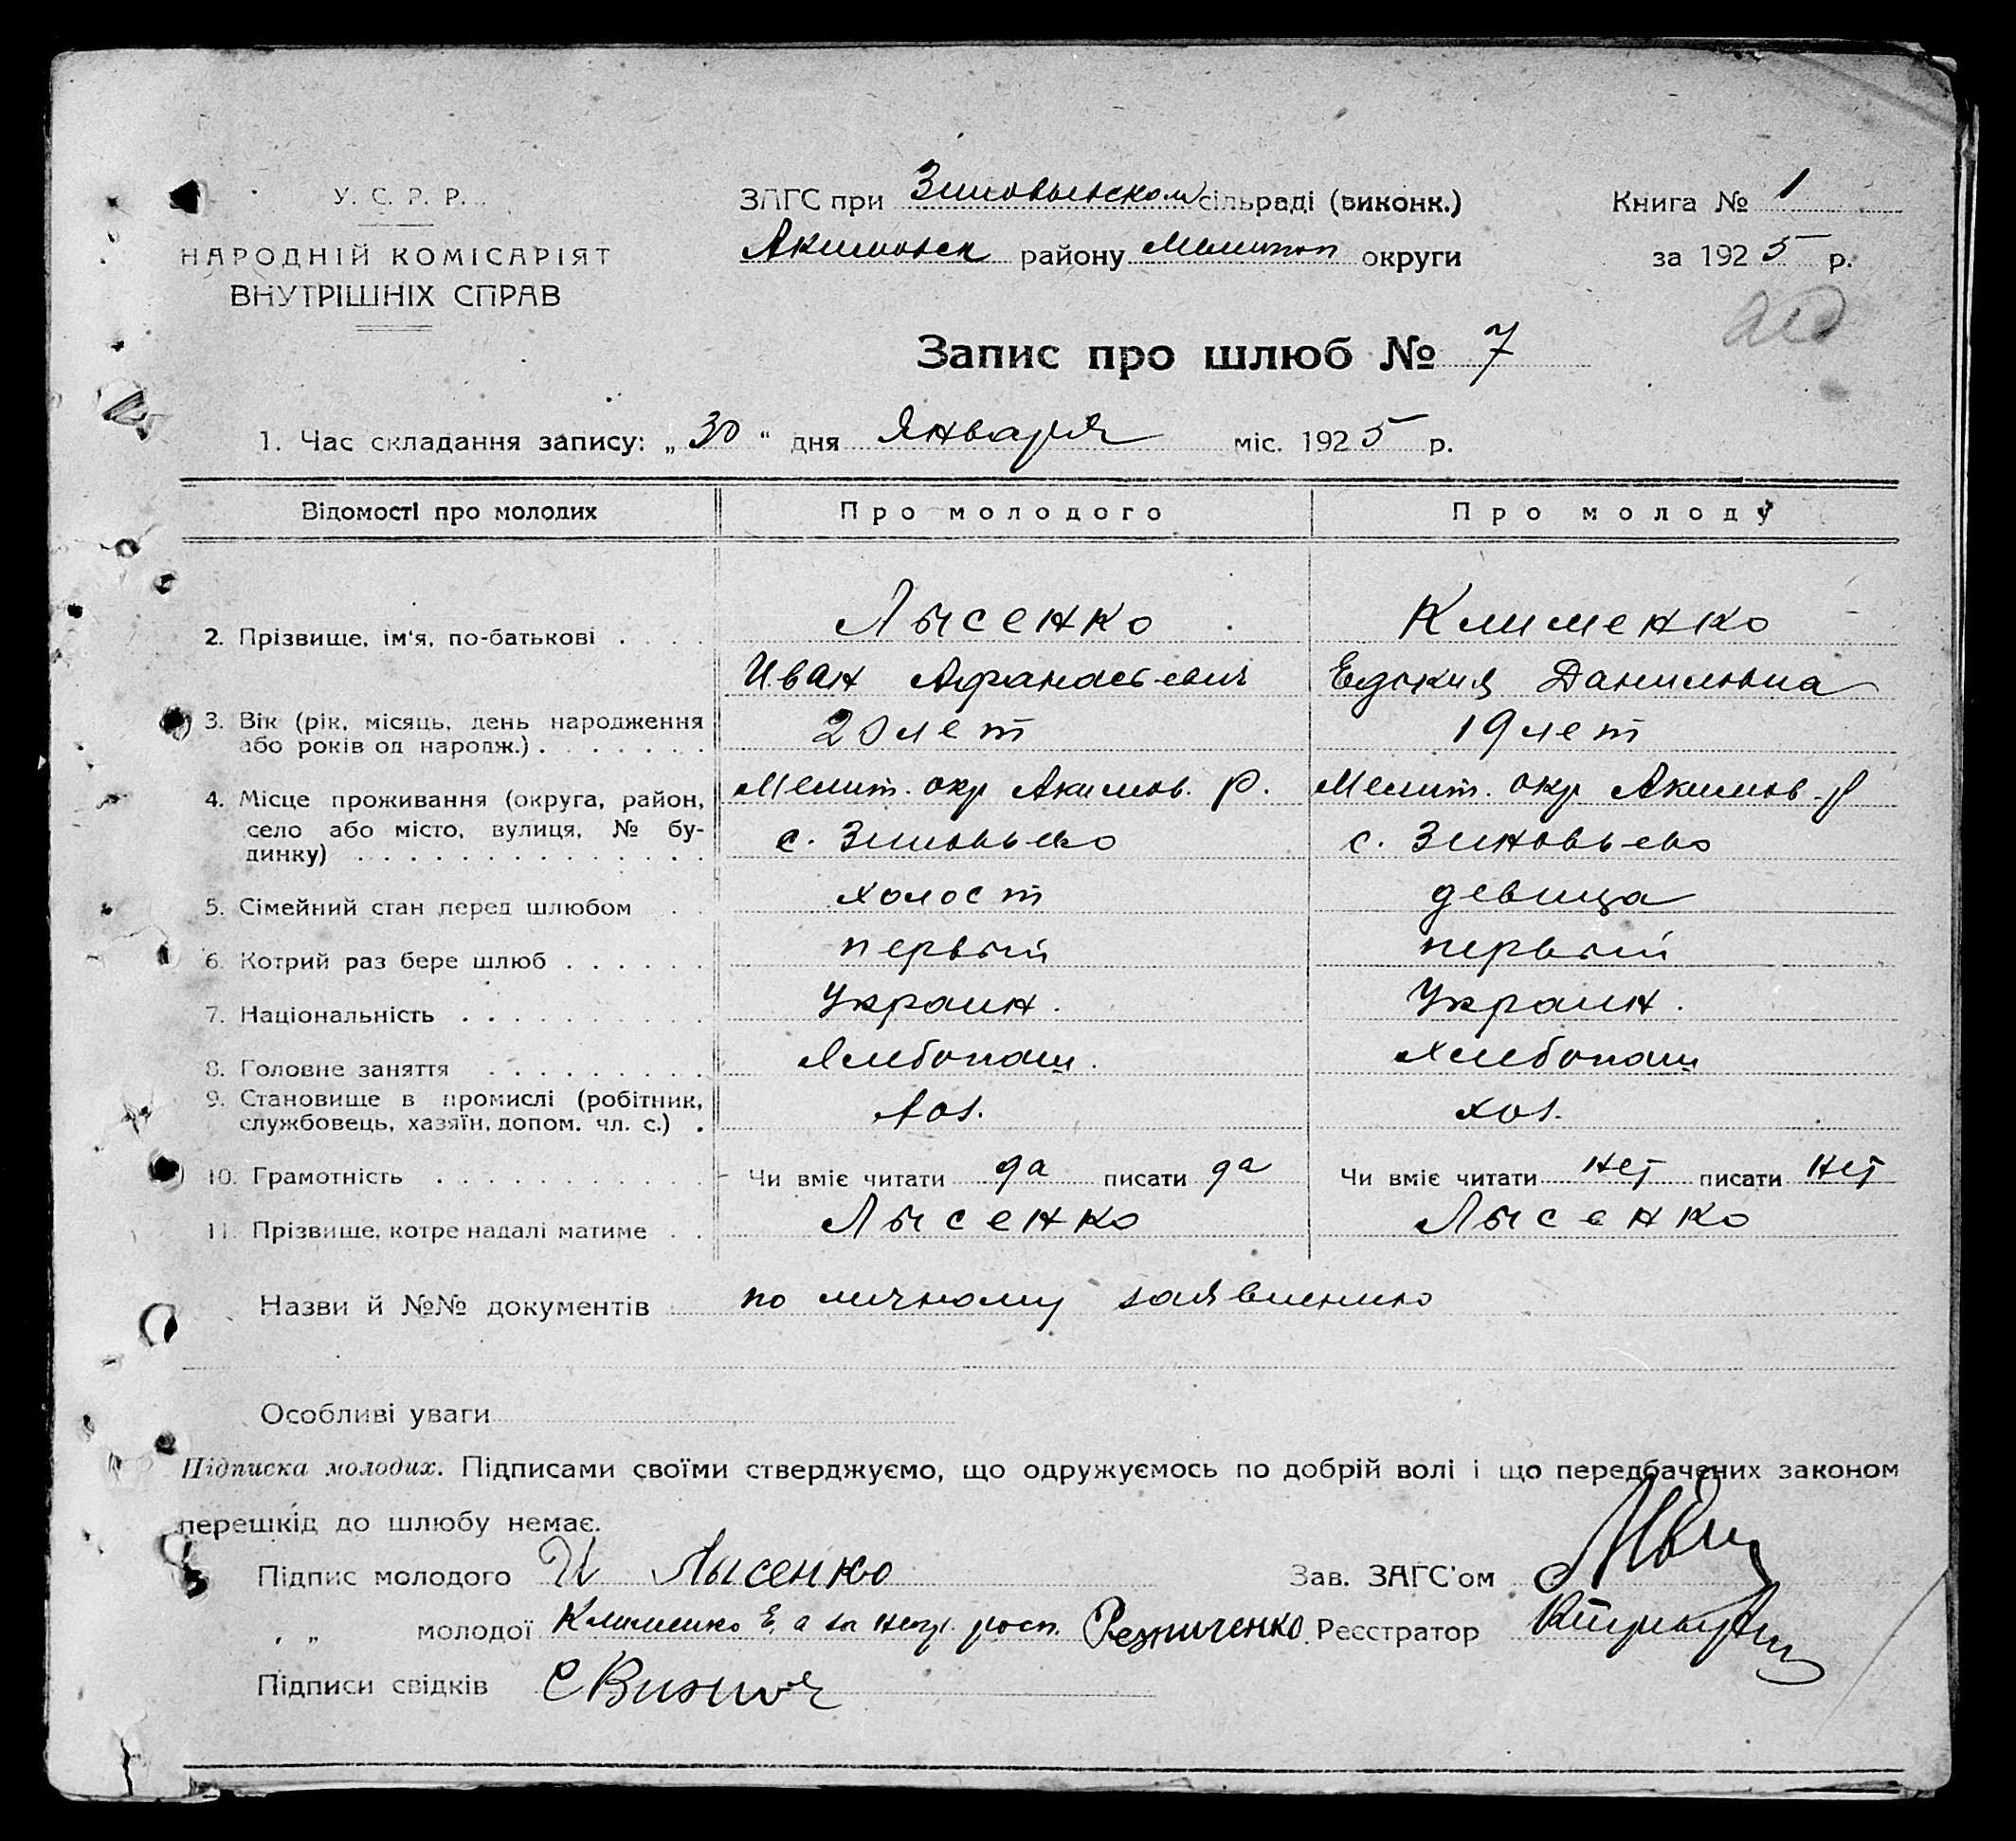 У. С. Р. Р.
НАРОДНІЙ КОМІСАРІЯТ
ВНУТРІШНІХ СПРАВ
ЗАГС при Зиновьевском сільраді (виконк.)
Акимовск району Мелитоп округи
Книга № 1
за 1925 р.
Запис про шлюб № 7
1. Час складання запису: „30“ дня Января міс. 1925 р.
Відомості про молодих Про молодого Про молоду
2. Прізвище, ім'я, по-батькові Лысенко Клименко
Иван Афанасьевич Едокия Даниловна
3. Вік (рік, місяць, день народження
або років од народж.) 20 лет 19 лет
4. Місце проживання (округа, район, Мелит. окр Акимов. р. Мелит. окр Акимов. р
село або місто, вулиця, № бу-
динку) с. Зиновьево с. Зиновьево
5. Сімейний стан перед шлюбом холост девица
6. Котрий раз бере шлюб первый первый
7. Національність Украин. Украин.
8. Головне заняття Хлебопаш. Хлебопаш
9. Становище в промислі (робітник,
службовець, хазяїн, допом. чл. с.) хоз. хоз.
10. Грамотність Чи вміє читати да писати да Чи вміє читати нет писати нет
11. Прізвище, котре надалі матиме Лысенко Лысенко
Назви й №№ документів по личному заявлению
Особливі уваги
Підписка молодих. Підписами своїми стверджуємо, що одружуємось по добрій волі і що передбачених законом
перешкід до шлюбу немає.
Підпис молодого И Лысенко Зав. ЗАГС'ом
„ „ молодої Клименко Е, а за негр. росп. Резниченко Реєстратор
Підписи свідків